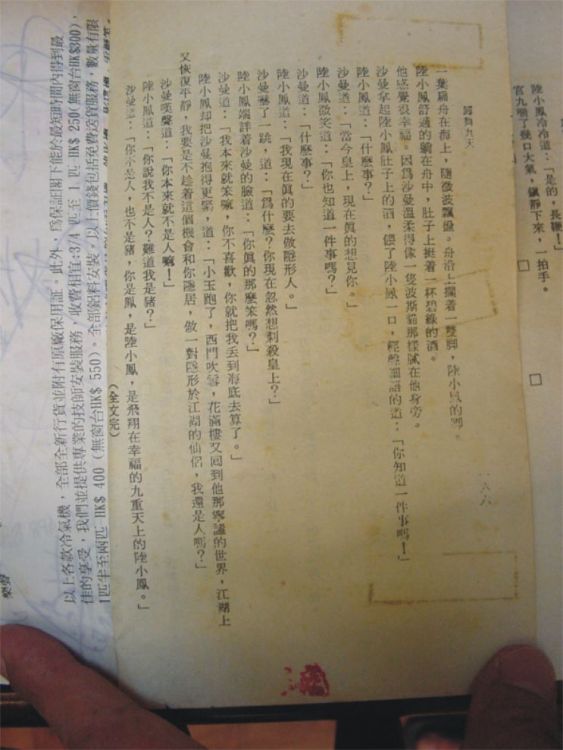 陸小鳳冷冷道：「是的，長鞭！」
官九喘了幾口大氣，鎮靜下來，一拍手。
歸舟九天
一葉扁舟在海上，隨微波飄盪。舟沿上擱着一雙脚，陸小鳳的脚。
陸小鳳舒適的躺在舟中，肚子上挺着一杯碧綠的酒。
他感覺很幸福。因爲沙曼溫柔得像一隻波斯貓那樣膩在他身旁。
沙曼拿起陸小鳳肚子上的酒，餵了陸小鳳一口，輕聲細語的道：「你知道一件事嗎！」
陸小鳳道：「什麼事？」
沙曼道：「當今皇上，現在眞的想見你。」
陸小鳳微笑道：「你也知道一件事嗎？」
沙曼道：「什麼事？」
陸小鳳道：「我現在眞的要去做隱形人。」
沙曼嚇了一跳，道：「爲什麼？你現在忽然想刺殺皇上？」
陸小鳳端詳着沙曼的臉道：「你眞的那麼笨嗎？」
沙曼道：「我本來就笨嘛，你不喜歡，你就把我丢到海底去算了。」
陸小鳳却把沙曼抱得更緊，道：「小玉跑了，西門吹雪，花滿樓又回到他那寧謐的世界，江湖上
又恢復平靜，我要是不趁着這個機會和你隱居，做一對隱形於江湖的仙侶，我還是人嗎？」
沙曼笑聲道：「你本來就不是人嘛！」
陸小鳳道：「你說我不是人？難道我是豬？」
沙曼道：「你不是人，也不是豬，你是鳳，是陸小鳳，是飛翔在幸福的九重天上的陸小鳳。」
（全文完）
1匹半至兩匹 HK$ 400（無窗台HK$ 550），全部鋁料安裝，以上價錢包括免費送貨服務，數量有限
佳的享受，我們並提供專業的技師安裝服務，收費相宜:3/4 匹至 1 匹 HK$ 250(無窗台HK$300)，
以上各款冷氣機，全部全新行貨並附有原廠保用証。此外，爲保証閣下能於最短時間內得到最